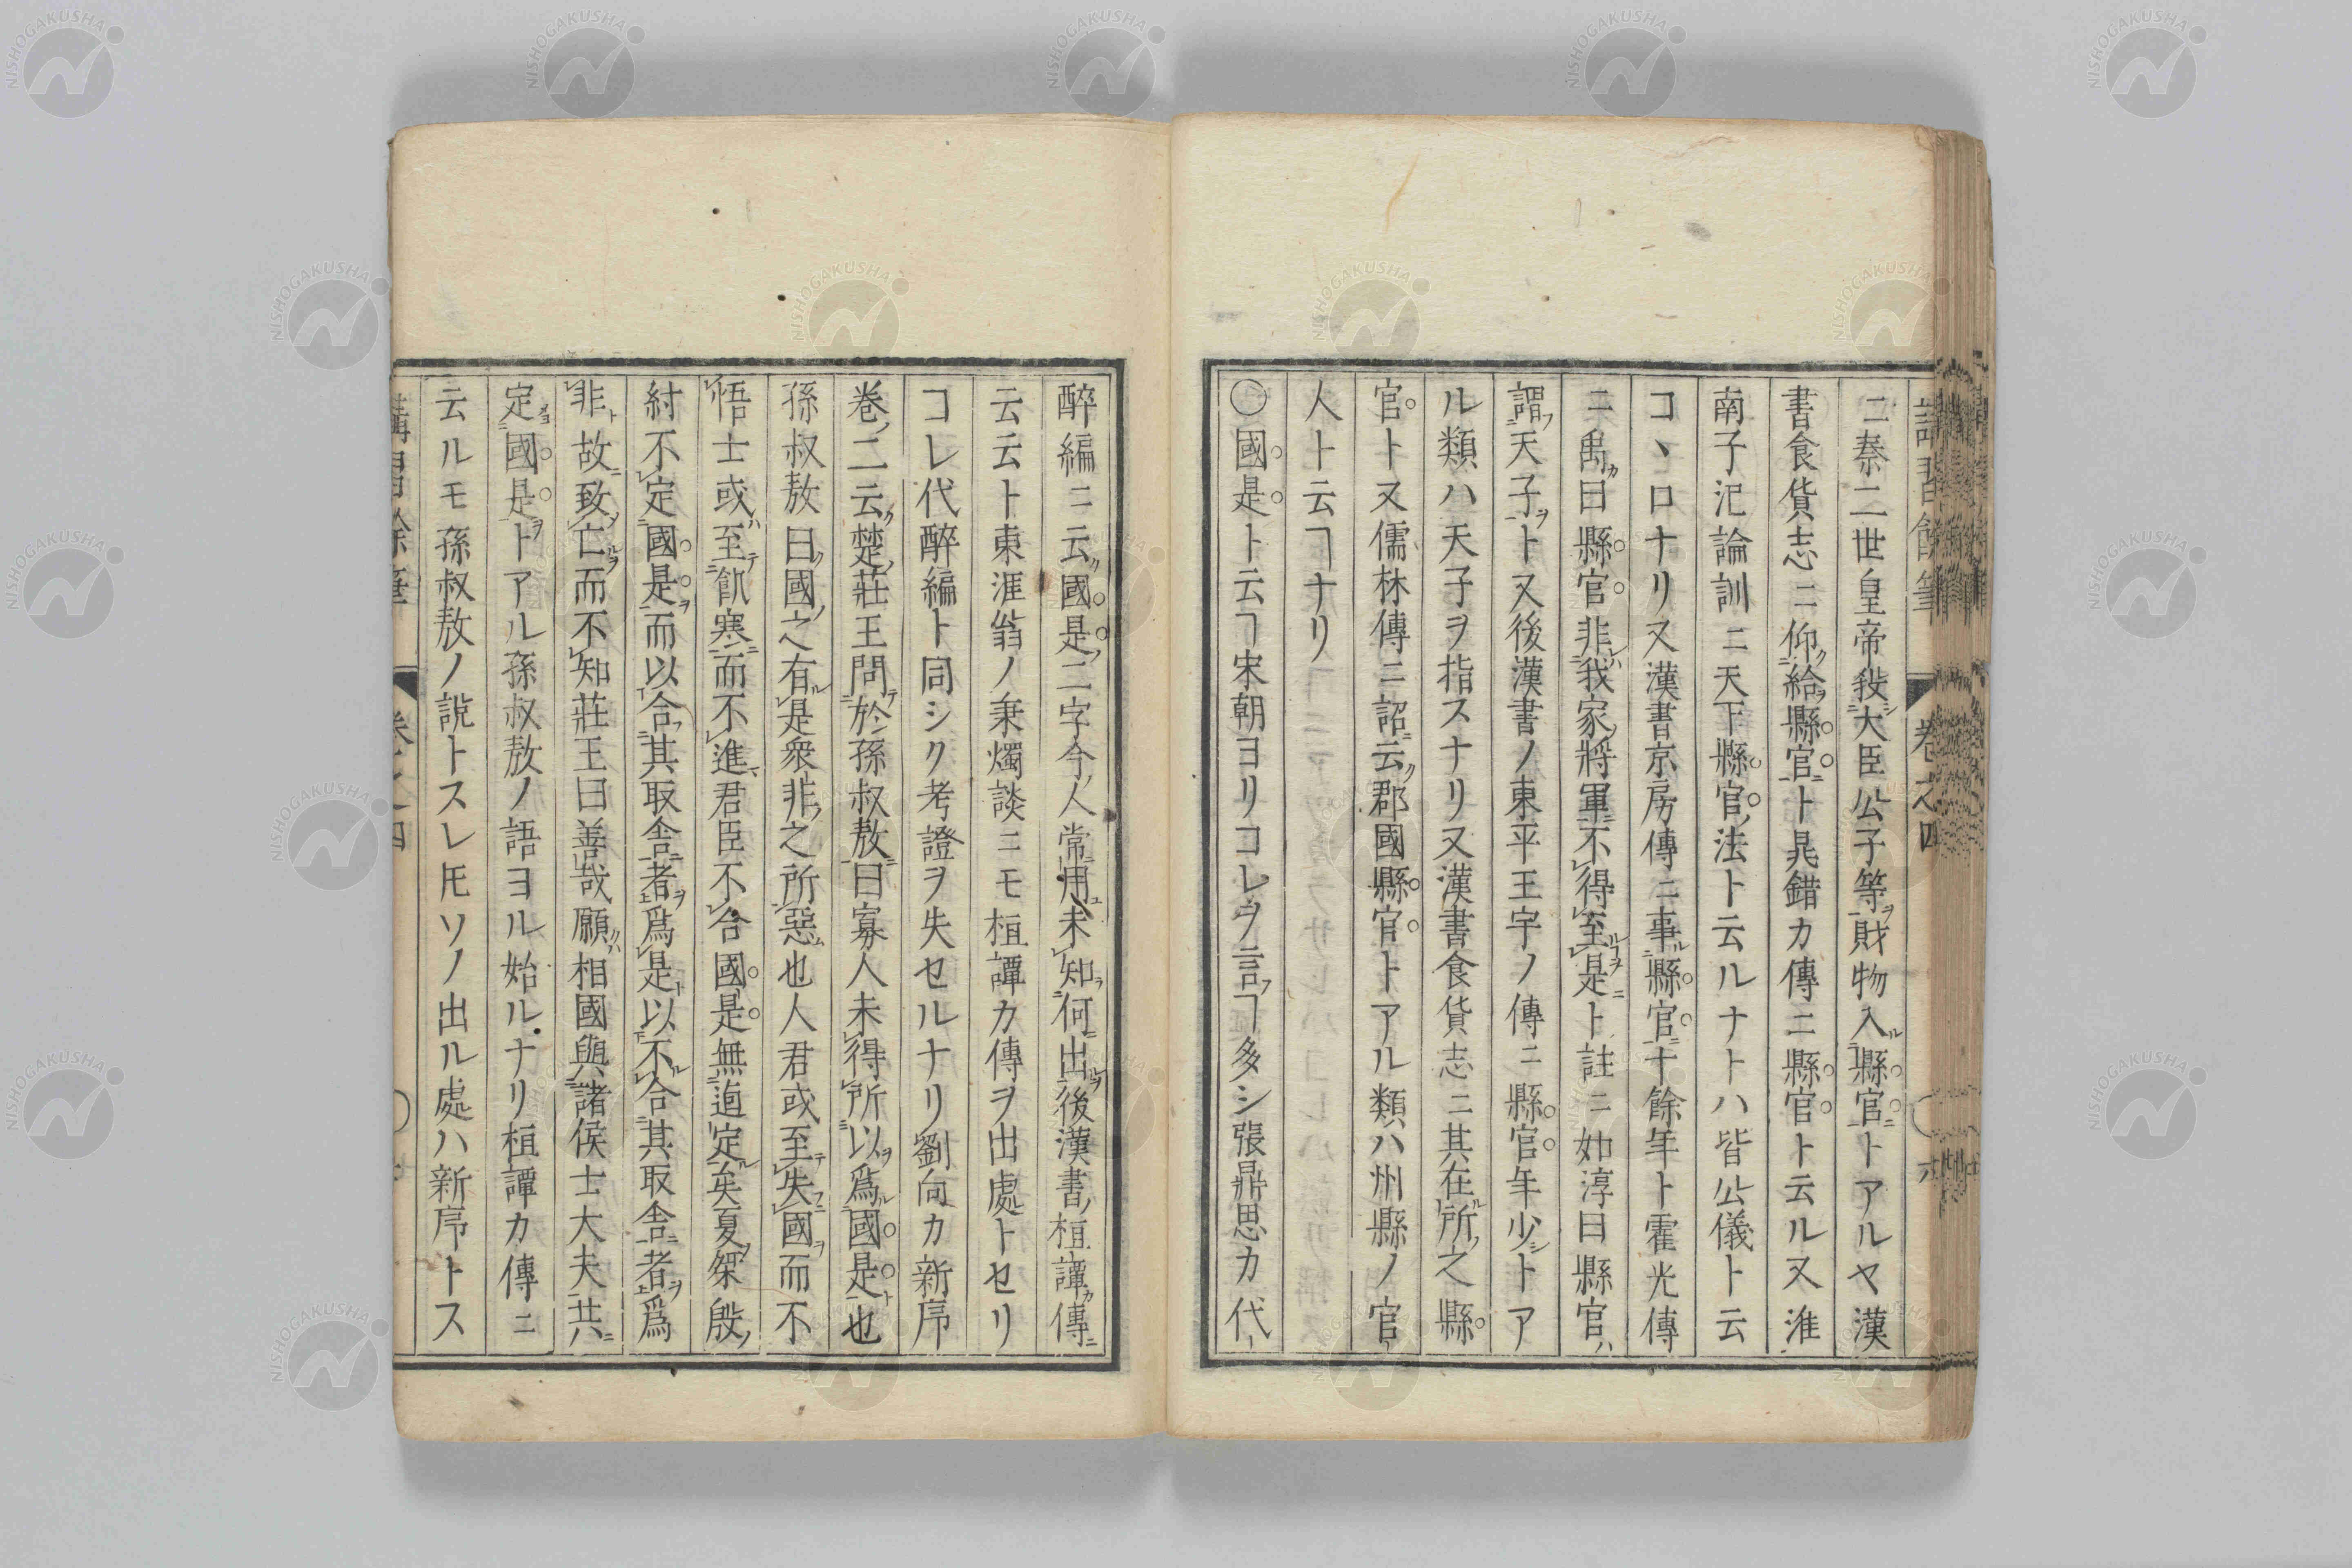 ニ秦二世皇帝殺大臣公子等財物入縣官トアルヤ漢
書食貨志ニ仰給縣官ト晁錯カ傳ニ縣官ト云ル又淮
南子氾論訓ニ天下縣官法ト云ルナトハ皆公儀ト云
コヽロナリ又漢書京房傳ニ事縣官十餘年ト霍光傳
ニ禹曰縣官非我家將軍不得至是ト註ニ如淳曰縣官
謂天子ト又後漢書ノ東平王宇ノ傳ニ縣官年少トア
ル類ハ天子ヲ指スナリ又漢書食貨志ニ其在所之縣
官ト又儒林傳ニ詔云郡國縣官トアル類ハ州縣ノ官
人ト云ヿナリ
○國是ト云ヿ宋朝ヨリコレヲ言ヿ多シ張鼎思カ代
醉編ニ云國是二字今人常用未知何出後漢書桓譚傳
云云ト東涯翁ノ秉燭談ニモ桓譚カ傳ヲ出處トセリ
コレ代醉編ト同シク考證ヲ失セルナリ劉向カ新序
卷二云楚莊王問於孫叔敖曰寡人未得所以爲國是也
孫叔敖曰國之有是衆非之所惡也人君或至失國而不
悟士或至飢寒而不進君臣不合國是無逌定矣夏桀殷
紂不定國是而以合其取舍者爲是以不合其取舍者爲
非故致亡而不知莊王曰善哉願相國與諸侯士大夫共
定國是トアル孫叔敖ノ語ヨル始ルナリ桓譚カ傳ニ
云ルモ孫叔敖ノ說トスレ𪜈ソノ出ル處ハ新序トス
講習餘筆 卷之四